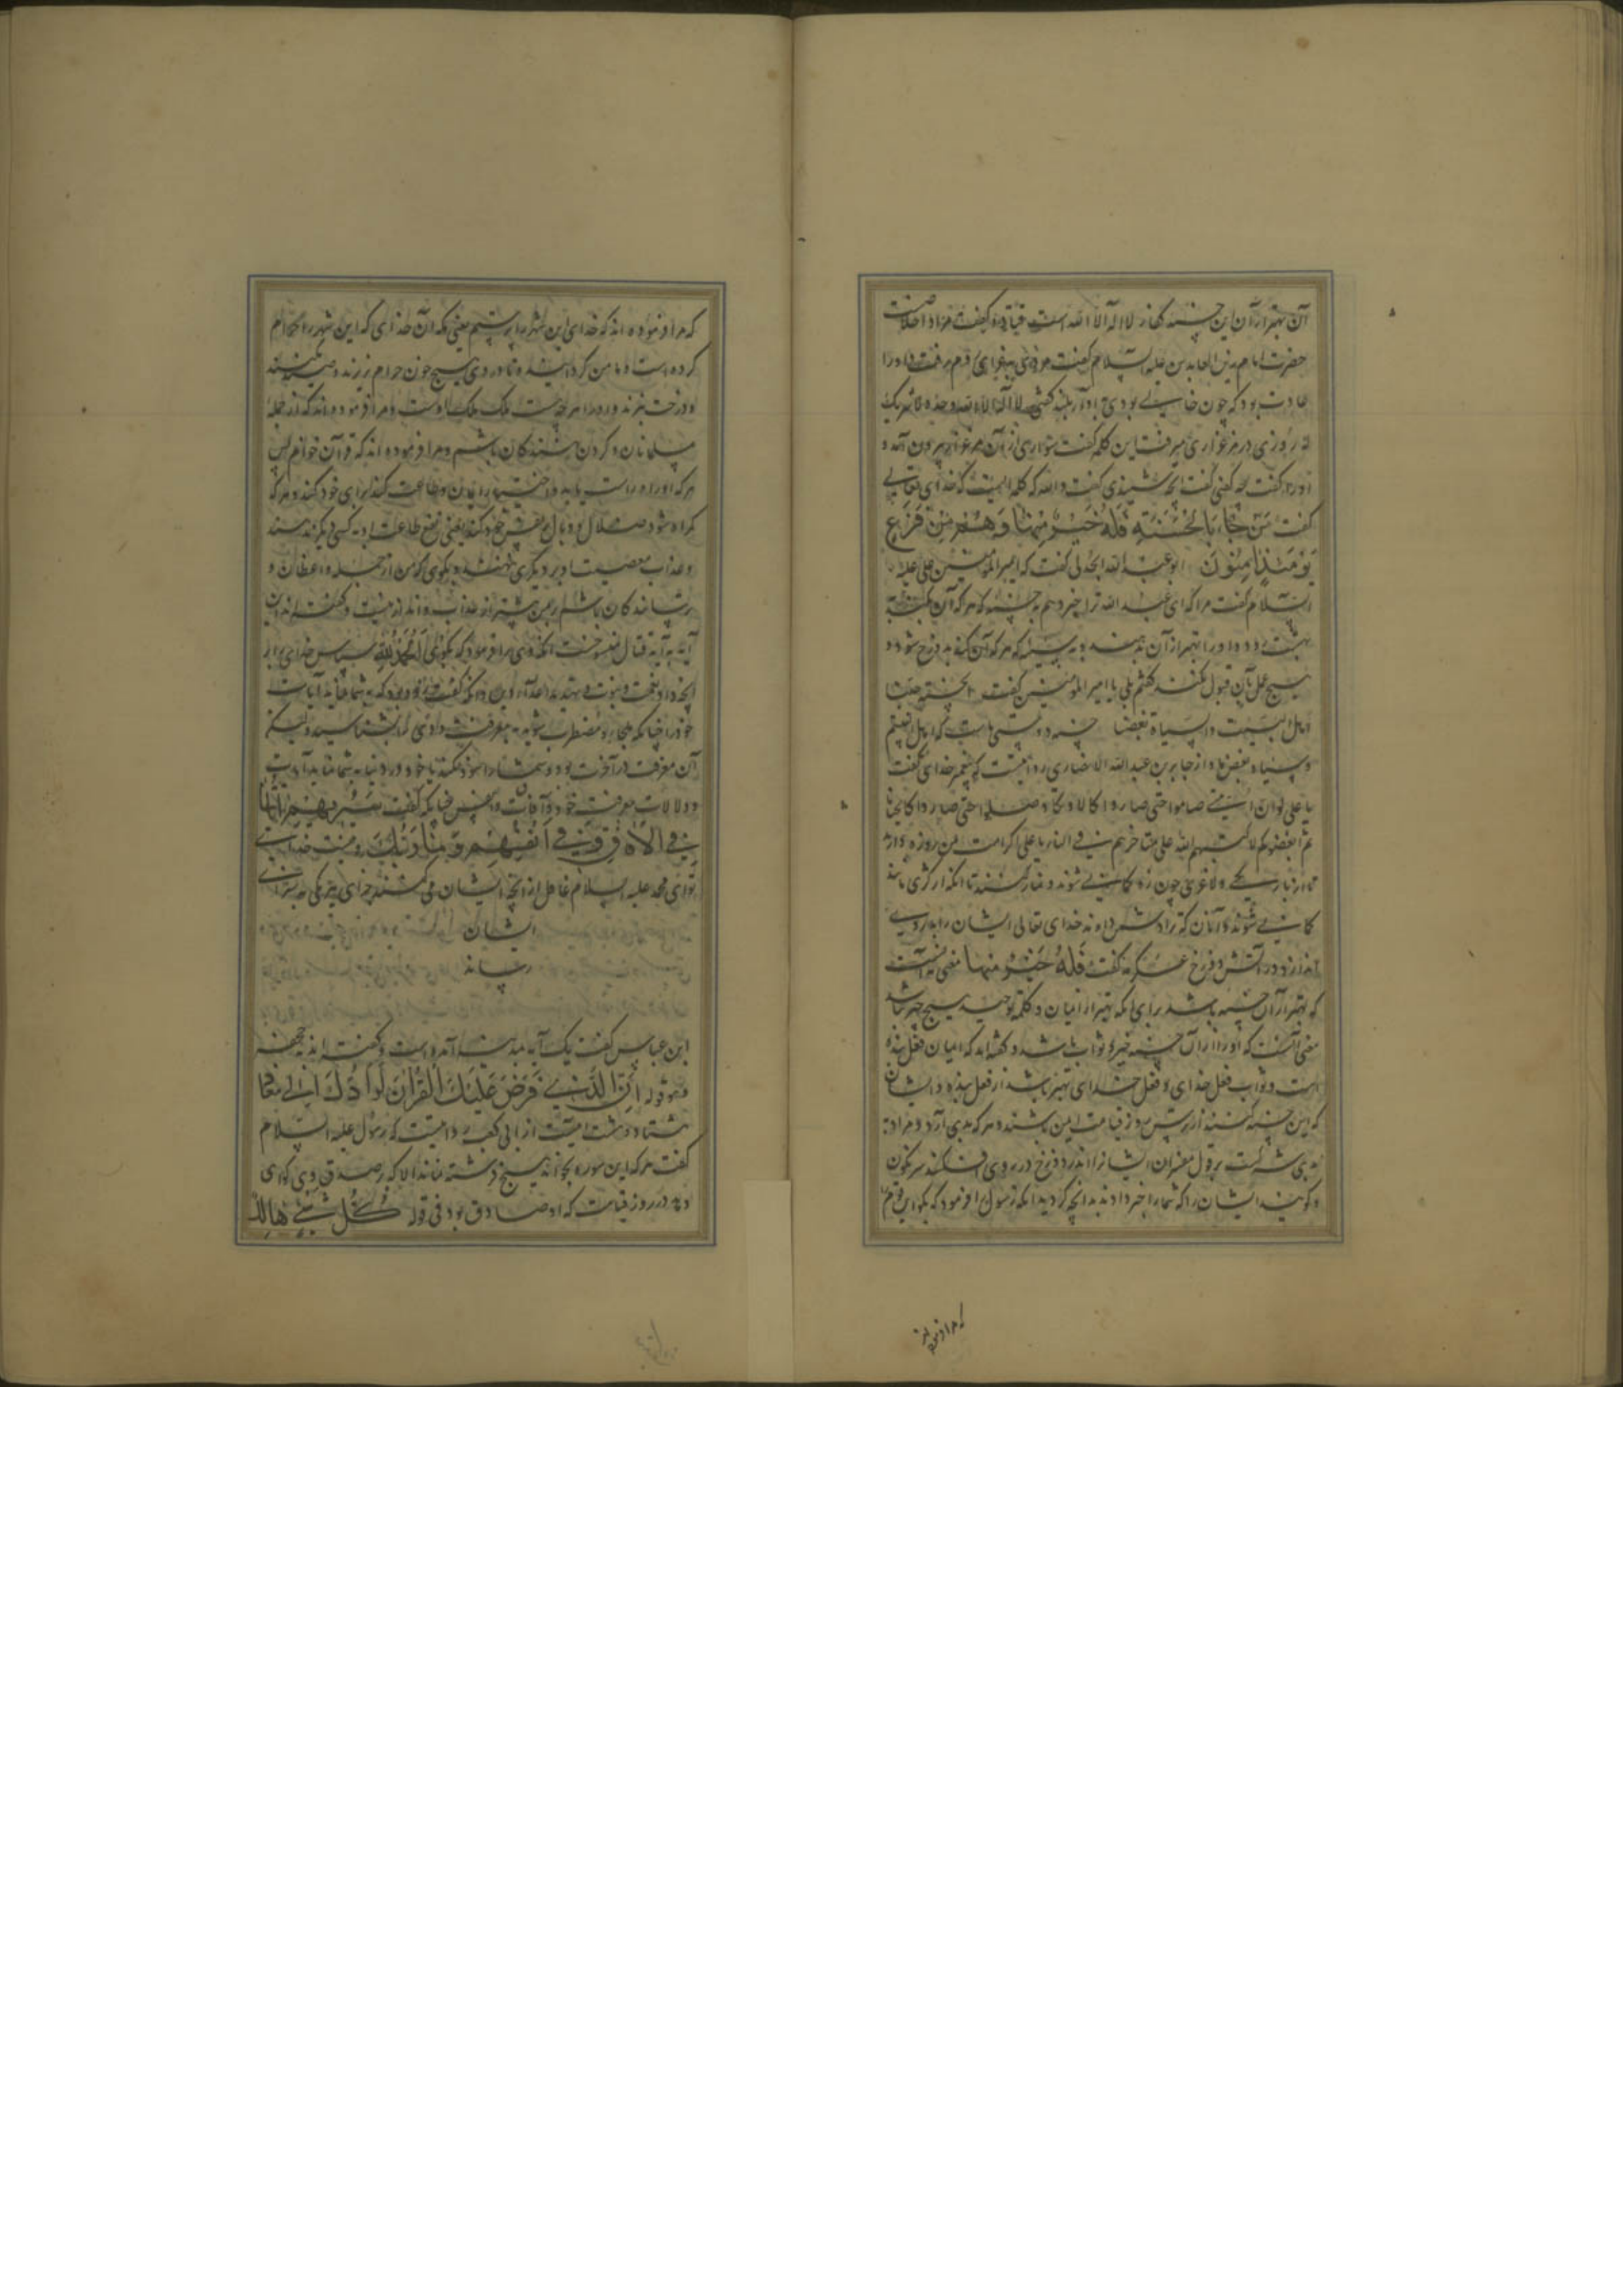 آن بهتر از آن این حسنه گفتار لا اله الا الله است قتاده گفت مراد اخلاصست
حضرت امام زین العابدین علیه السلام گفت مردی بغزای روم رفت و او را
عادت بود که چون خالی بودی بآواز بلند گفتی لا اله الا الله وحده لا شریک
له روزی در مرغزاری میرفت این کلمه گفت سواری از آن مرغزار بیرون آمد و
او را گفت چه گفتی گفت آنچه شنیدی گفت والله که کلمه ایست که خدای تعالی
گفت مَن جَاءَ بِالْحَسَنَةِ فَلَهُ خَيْرٌ مِنْهَا وَهُمْ مِنْ فَزَعٍ
يَوْمَئِذٍ آمِنُونَ ابو عبد الله الجدلی گفت که امیر المؤمنین علی علیه
السلام گفت مرا که ای عبد الله ترا خبر دهم به حسنه که هر که آن کند به
بهشت رود و او را بهتر از آن بدهند و به سیئه که هر که آن کند بدوزخ شود و
هیچ عمل بآن قبول نکنند گفتم بلی یا امیر المؤمنین گفت الحسنة حبنا
اهل البیت والسیئة بغضنا حسنه دوستی ماست که اهل بیتیم
و سیئه بغض ما و از جابر بن عبد الله الانصاری روایتست که پیغمبر خدای گفت
یا علی لو ان امتی صاموا حتی صاروا کالاوتار وصلوا حتی صاروا کالحنایا
ثم ابغضوکم لاکبهم الله علی مناخرهم فی النار یا علی اگر امت من روزه دارند
تا از باریکی و لاغری چون زه کمان شوند و نماز کنند تا آنکه از کژی مانند
کمان شوند و آنان که ترا دشمن دارند خدای تعالی ایشان را بر روی
اندازد در آتش دوزخ عکرمه گفت فَلَهُ خَيْرٌ مِنْهَا معنی نه آنست
که بهتر از آن حسنه باشد برای آنکه بهتر از ایمان و کلمه توحید هیچ چیز نباشد
معنی آنست که او را از آن حسنه خیر و ثواب باشد و گفته‌اند که ایمان فعل بنده
است و ثواب فعل خدای و فعل خدای بهتر باشد از فعل بنده و ایشان
که این حسنه کنند از ترس روز قیامت ایمن باشند و هر که بدی آرد و مراد به
بدی شرکست بر قول مفسران ایشانرا اندر دوزخ در روی افکنند سرنگون
و گویند ایشان را که شما را جزا دادند بدانچه کردید آنکه رسول را فرمود که بگو این قوم را
که مرا فرموده‌اند
که مرا فرموده اند که خدای این شهر را پرستیم یعنی مکه آن خدای که این شهر را حرام
کرده است و مأمن گردانیده تا در وی هیچ خون حرام نریزند و صید نکنند
و درخت نبرند و او را هر چه هست ملک ملک اوست و مرا فرموده‌اند که از جمله
مسلمانان و گردن نهندگان باشم و مرا فرموده اند که قرآن خوانم پس
هر که او راه راست یابد و اختیار ایمان و طاعت کند برای خود کند و هر که
گمراه شود ضلال و وبال بنفس خود کند یعنی نفع طاعت او به کسی دیگر نرسد
و عذاب معصیت او بر دیگری ننهند و بگوی که من از جمله واعظان و
ترسانندگان باشم بر من بیشتر از عذاب و انذار نیست و گفته‌اند این
آیه به آیه قتال منسوخست آنکه وی را فرمود که بگوی الْحَمْدُ لِلَّهِ سپاس خدای را بر
آنچه داد نعمت و نبوت و تهدید اعداء دین و آنکه گفت زود بود که به شما نماید آیات
خود را چنانکه ملجأ و مضطرب شوید به معرفت و او را بشناسید و لیکن
آن معرفت در آخرت بود و شما را سود نکند یا خود در دنیا به شما نماید آیات
و دلالات معرفت خود در آفاق و انفس چنانکه گفت سَنُرِيهِمْ آيَاتِنَا
فِي الْآفَاقِ وَفِي أَنْفُسِهِمْ وَمَا رَبُّكَ و نیست خدای
تو ای محمد علیه السلام غافل از آنچه ایشان می‌کنند جزای هر یکی به سزای
ایشان
رساند
ابن عباس گفت یک آیه بمدینه آمده است و گفته‌اند به جحفه
و هو قوله إِنَّ الَّذِي فَرَضَ عَلَيْكَ الْقُرْآنَ لَرَادُّكَ إِلَى مَعَادٍ
هشتاد و هشت آیتست از ابی کعب روایتست که رسول علیه السلام
گفت هر که این سوره بخواند هیچ فرشته نماند الا که بر صدق وی گواهی
دهد در روز قیامت که او صادق بود فی قوله كُلُّ شَيْءٍ هَالِكٌ